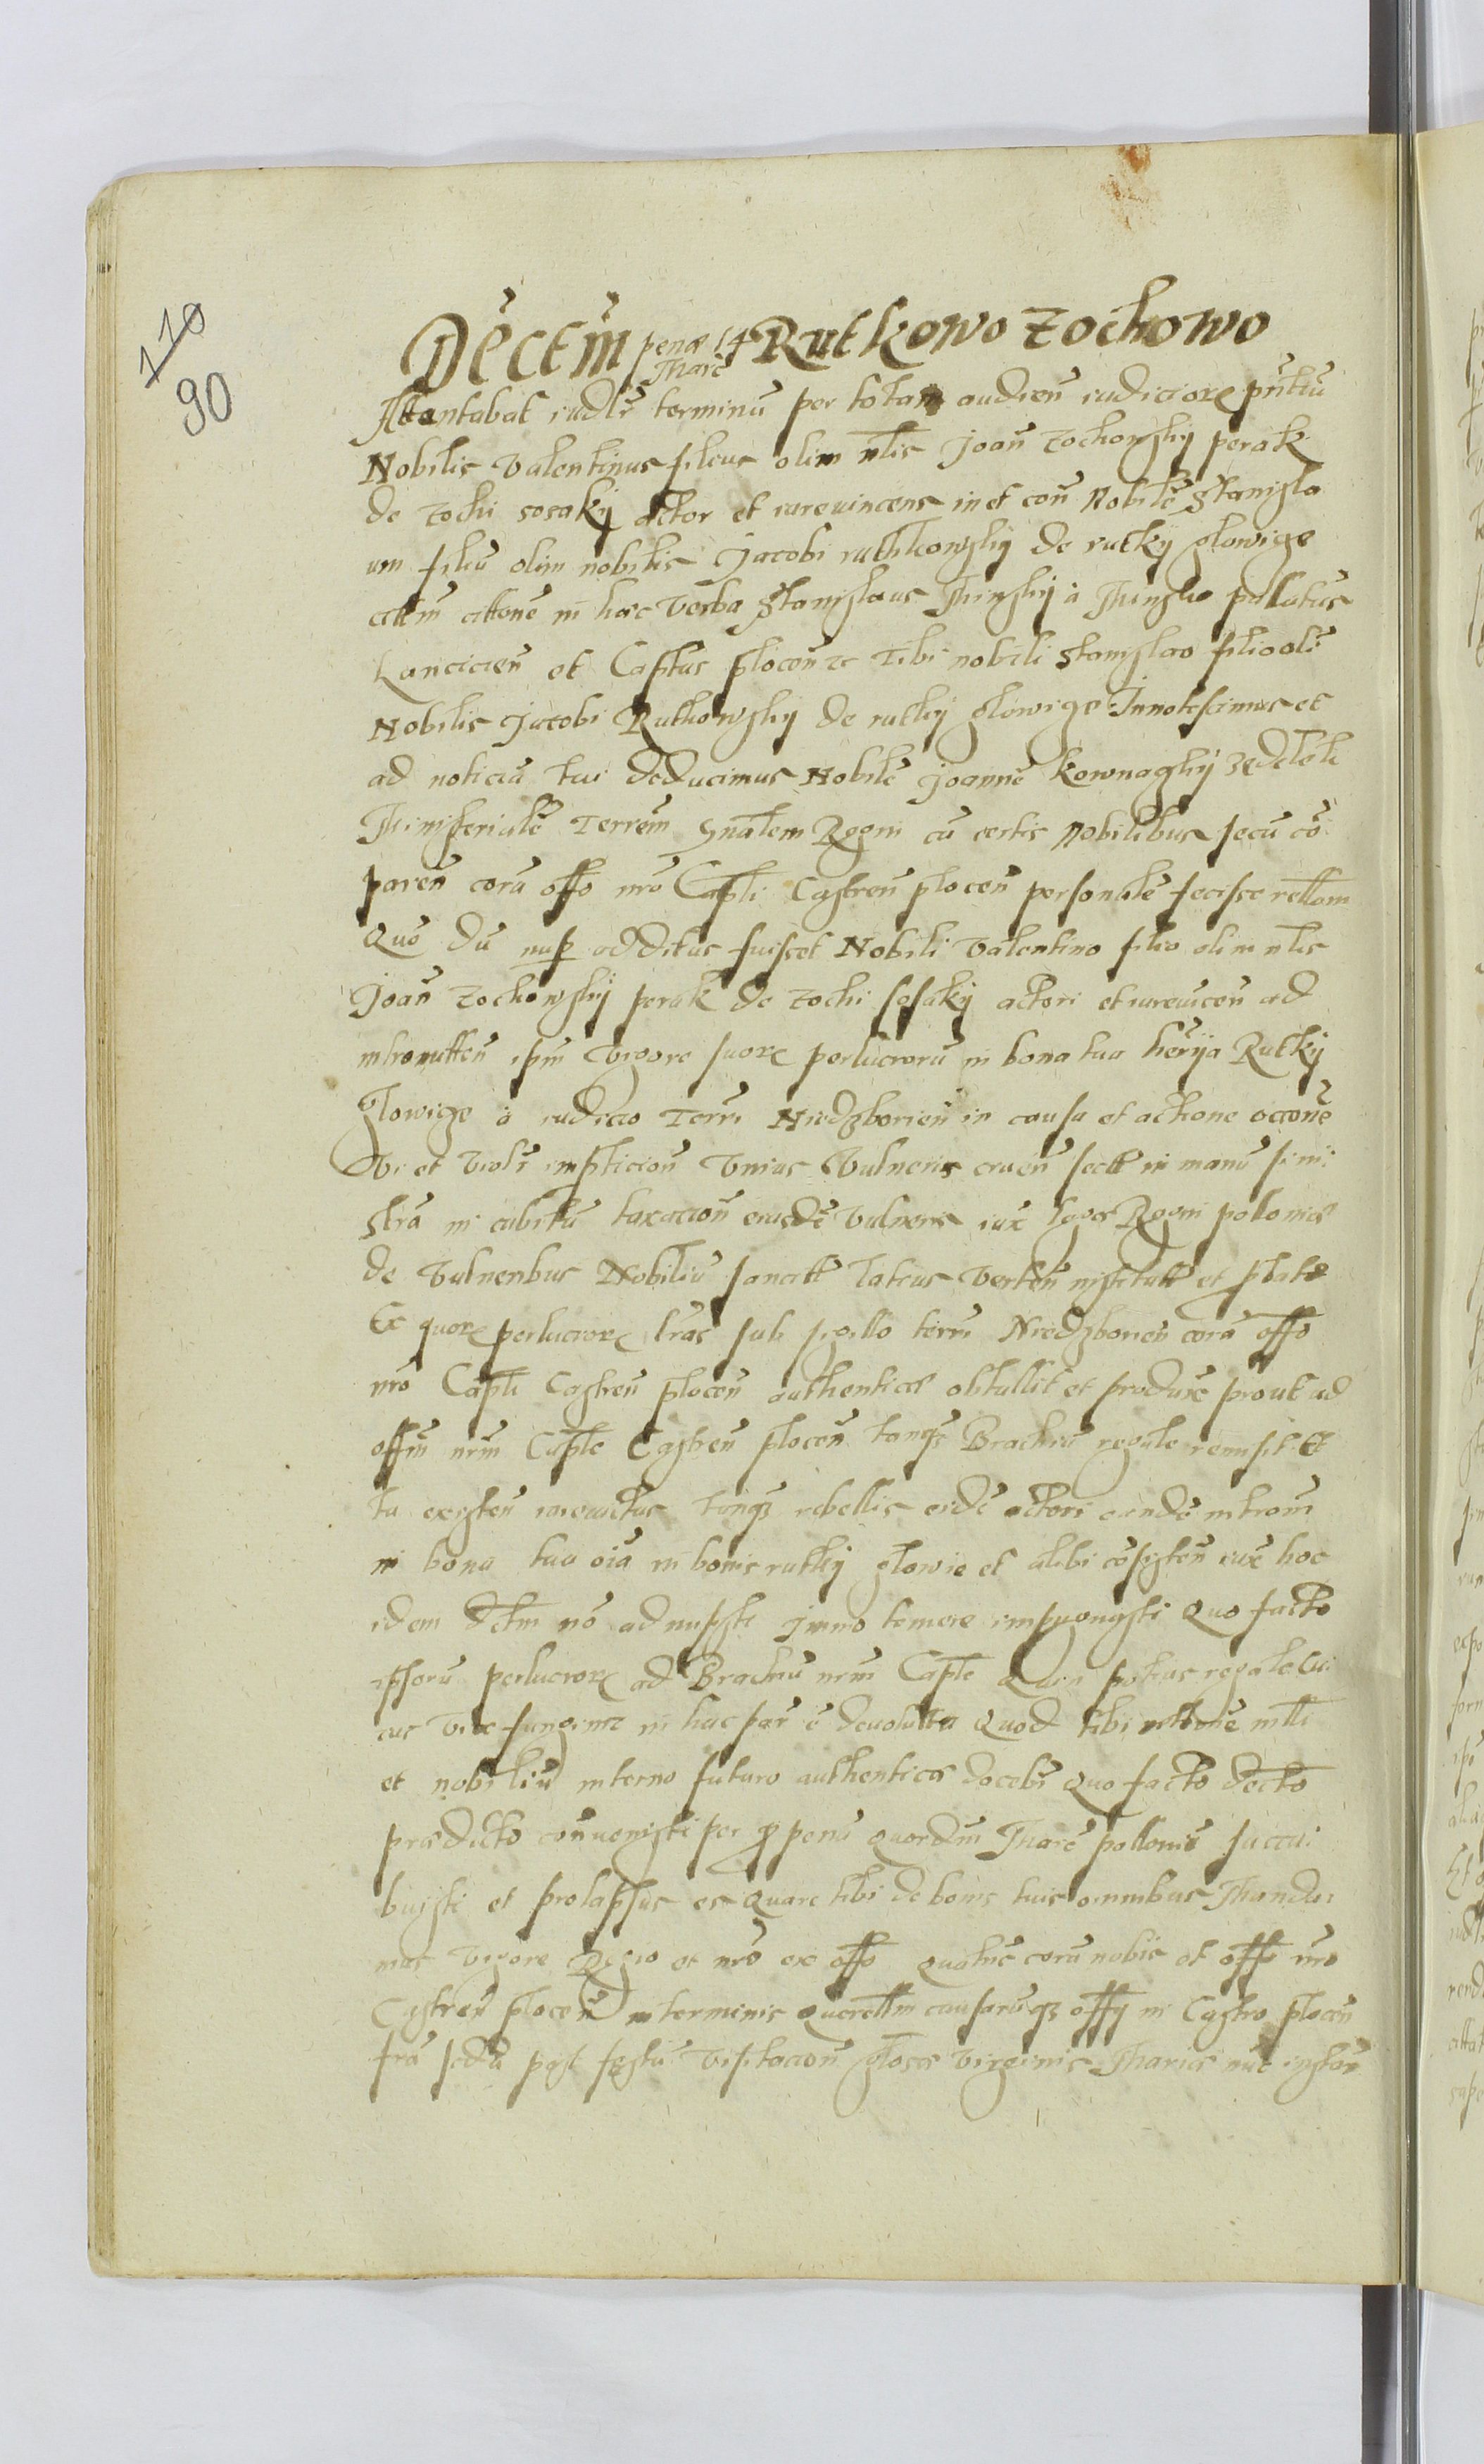 110
90
Dectm penæ 14 Rutkowo Zochowo
Marc
Attentabat iudlr terminũ per totam audien iudiciorx pñtiũ
Nobilis Valentinus filius olim nlis Joañ Zochowskij perak
de Zochi sosakij actor et iurevincens in et coñ Nobilẽ Stanisla
um filiũ olim nobilis Jacobi rutkowskij de rutkij glowige
cittm cittonẽ in hæc verba Stanislaus Minskij à Minsko pallatus
Lancicieñ et Captus ploceñ rc Tibi nobili Stanislao filio oli
Nobilis Jacobi Rutkowskij de rutkij glowige Innotescimus et
ad noticiã tui deducimus Nobilẽ Joannẽ kownaczkij
Ministerialẽ Terrem gnalem Regni cũ certis Nobilibus secũ cõ
pareñ corã offo nrõ Capli Castreñ ploceñ personalẽ fecisse rellom
Quo dũ nup additus fuisset Nobili Valentino filio olim nlis
Joañ Zochowskij perak de Zochi sosakij actori et iureviceñ ad
intromitteñ ipm vigore suorx perlucrorũ in bona tua herija Rutkij
glowige à iudicio Terri Niedzborieñ in causa et actione occõne
Vi et violr inflicioñ Vnius Vulneris crueñ sectt in manũ sini
strã in cubitũ taxacioñ eiusdẽ Vulneris iux leges Regni poloniæ
de Vulneribus Nobiliũ sancitt latius Verteñ institutt et
Ex quorx perlucrorx lras sub sigillo terri Niedzborieñ corã offo
nrõ Capli Castreñ ploceñ authenticæ obtullit et produxe prout ad
offm nrm Caple Castreñ ploceñ tanq Brachiũ regale remisit Et
tu existeñ iurevictus tanq rebellis eidẽ actori eundẽ introm
in bona tua oiã in bonis rutkij glowie et alibi cõsisteñ iux hoc
idem dctm nõ admissti immo temere impugnasti Quo facto
ipsorũ perlucrorx ad Brachiũ nrm Caple Quin potius regale Cui
cus vice fungimr in hac par ẽ devoluta Quod tibi
et nobiliũ in terno futuro authentice docebr Quo facto decto
prædicto contravenisti per penã quordm Marc polloniæ succui
buisti et prolapsus es Quare tibi de bonis tuis omnibus Manda
mus vigore Regio et nrõ ex offo quatus corã nobis et offo nrõ
Castreñ ploceñ in terminis querellm causarũq offij in Castro ploceñ
frã scdã post festũ visitacioñ glosæ virginis Mariæ nũc instañ